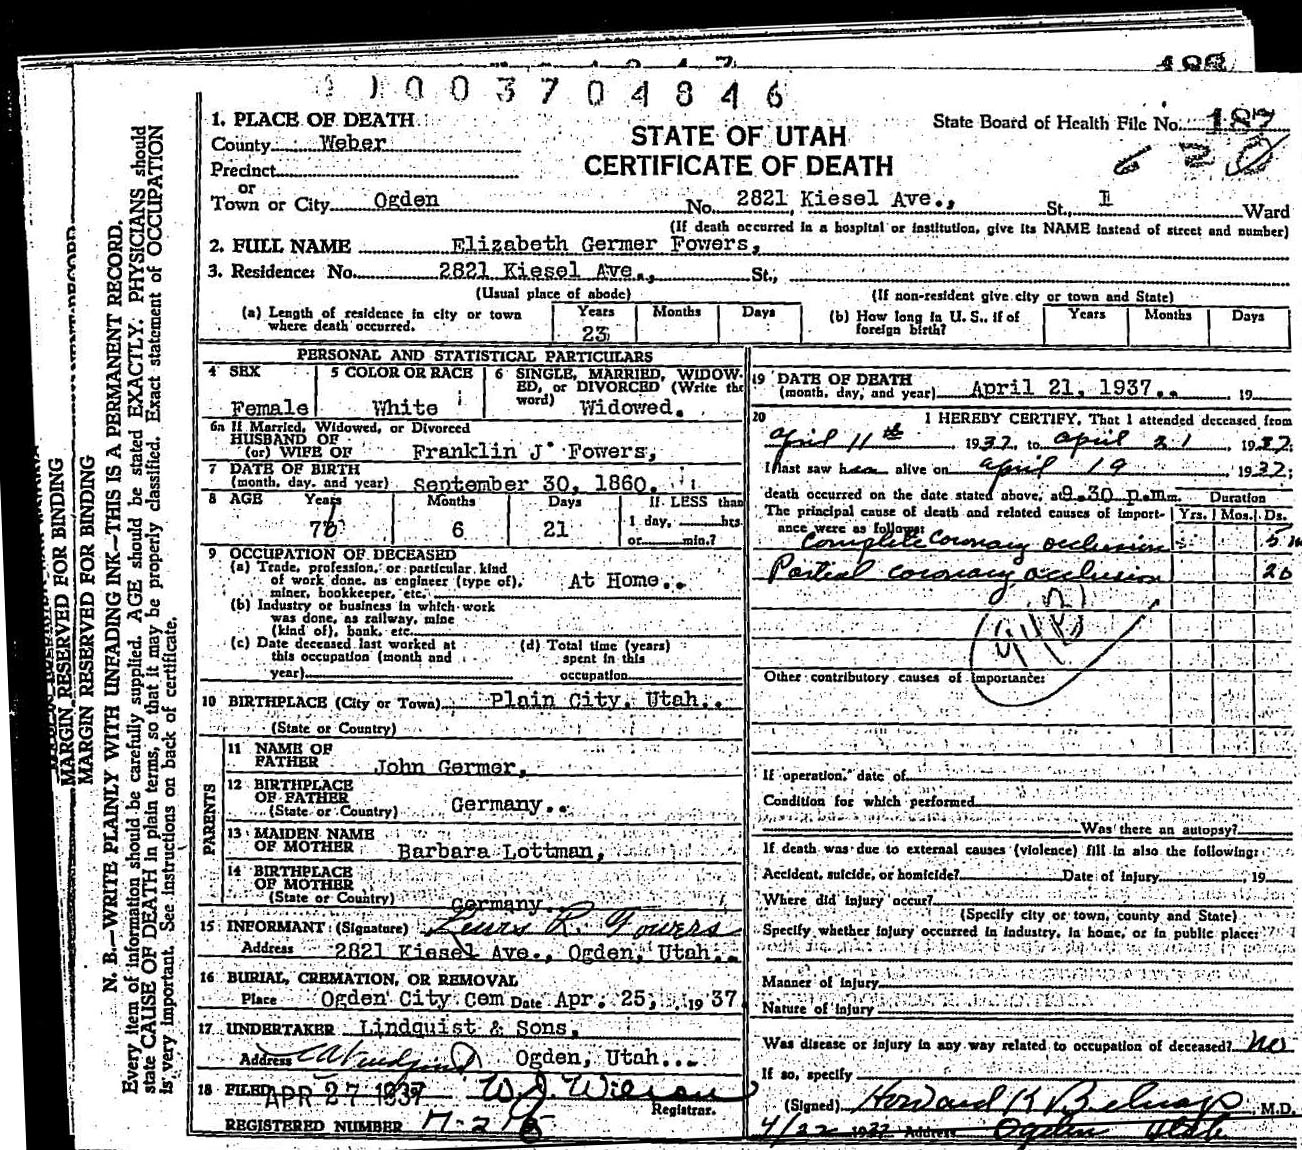 0 1 0 0 3 7 0 4 8 4 6
STATE OF UTAH
CERTIFICATE OF DEATH
State Board of Health File No. 187
620
1. PLACE OF DEATH
County Weber
Precinct
or
Town or City Ogden No. 2821 Kiesel Ave., St., 1 Ward
(If death occurred in a hospital or institution, give its NAME instead of street and number)
2. FULL NAME Elizabeth Germer Fowers,
3. Residence: No. 2821 Kiesel Ave., St.,
(Usual place of abode) (If non-resident give city or town and State)
(a) Length of residence in city or town where death occurred. Years 23 Months Days
(b) How long in U. S., if of foreign birth? Years Months Days
PERSONAL AND STATISTICAL PARTICULARS
4 SEX Female
5 COLOR OR RACE White
6 SINGLE, MARRIED, WIDOWED, or DIVORCED (Write the word) Widowed.
6a If Married, Widowed, or Divorced
HUSBAND OF
(or) WIFE OF Franklin J Fowers,
7 DATE OF BIRTH
(month, day, and year) September 30, 1860.
8 AGE Years 76 Months 6 Days 21 If LESS than 1 day, hrs. or min.?
9 OCCUPATION OF DECEASED
(a) Trade, profession, or particular kind
of work done, as engineer (type of), At Home..
miner, bookkeeper, etc.
(b) Industry or business in which work
was done, as railway, mine
(kind of), bank, etc.
(c) Date deceased last worked at this occupation (month and year)
(d) Total time (years) spent in this occupation
10 BIRTHPLACE (City or Town) Plain City, Utah..
(State or Country)
PARENTS
11 NAME OF FATHER John Germer,
12 BIRTHPLACE OF FATHER (State or Country) Germany..
13 MAIDEN NAME OF MOTHER Barbara Lottman,
14 BIRTHPLACE OF MOTHER (State or Country) Germany
15 INFORMANT (Signature) Lewis R. Fowers
Address 2821 Kiesel Ave., Ogden, Utah..
16 BURIAL, CREMATION, OR REMOVAL
Place Ogden City Cem Date Apr. 25, 1937
17 UNDERTAKER Lindquist & Sons,
Address Ogden, Utah...
18 FILED APR 27 1937 W. J. Wilson
Registrar.
REGISTERED NUMBER
19 DATE OF DEATH
(month, day, and year) April 21, 1937.. 19
20 I HEREBY CERTIFY, That I attended deceased from
April 11th 1937, to April 21 1937;
I last saw her alive on April 19, 1937;
death occurred on the date stated above, at 9.30 p.m. m. Duration
The principal cause of death and related causes of importance were as follows: Yrs. Mos. Ds.
Complete coronary occlusion 5
Partial coronary occlusion 20
94B
Other contributory causes of importance:
If operation, date of
Condition for which performed
Was there an autopsy?
If death was due to external causes (violence) fill in also the following:
Accident, suicide, or homicide? Date of injury 19
Where did injury occur?
(Specify city or town, county and State)
Specify whether injury occurred in industry, in home, or in public place:
Manner of injury
Nature of injury
Was disease or injury in any way related to occupation of deceased? No
If so, specify
(Signed) Howard K Belnap, M.D.
4/22 1937 Address Ogden Utah
MARGIN RESERVED FOR BINDING
MARGIN RESERVED FOR BINDING
N. B.—WRITE PLAINLY WITH UNFADING INK—THIS IS A PERMANENT RECORD.
Every item of information should be carefully supplied. AGE should be stated EXACTLY. PHYSICIANS should
state CAUSE OF DEATH in plain terms, so that it may be properly classified. Exact statement of OCCUPATION
is very important. See instructions on back of certificate.